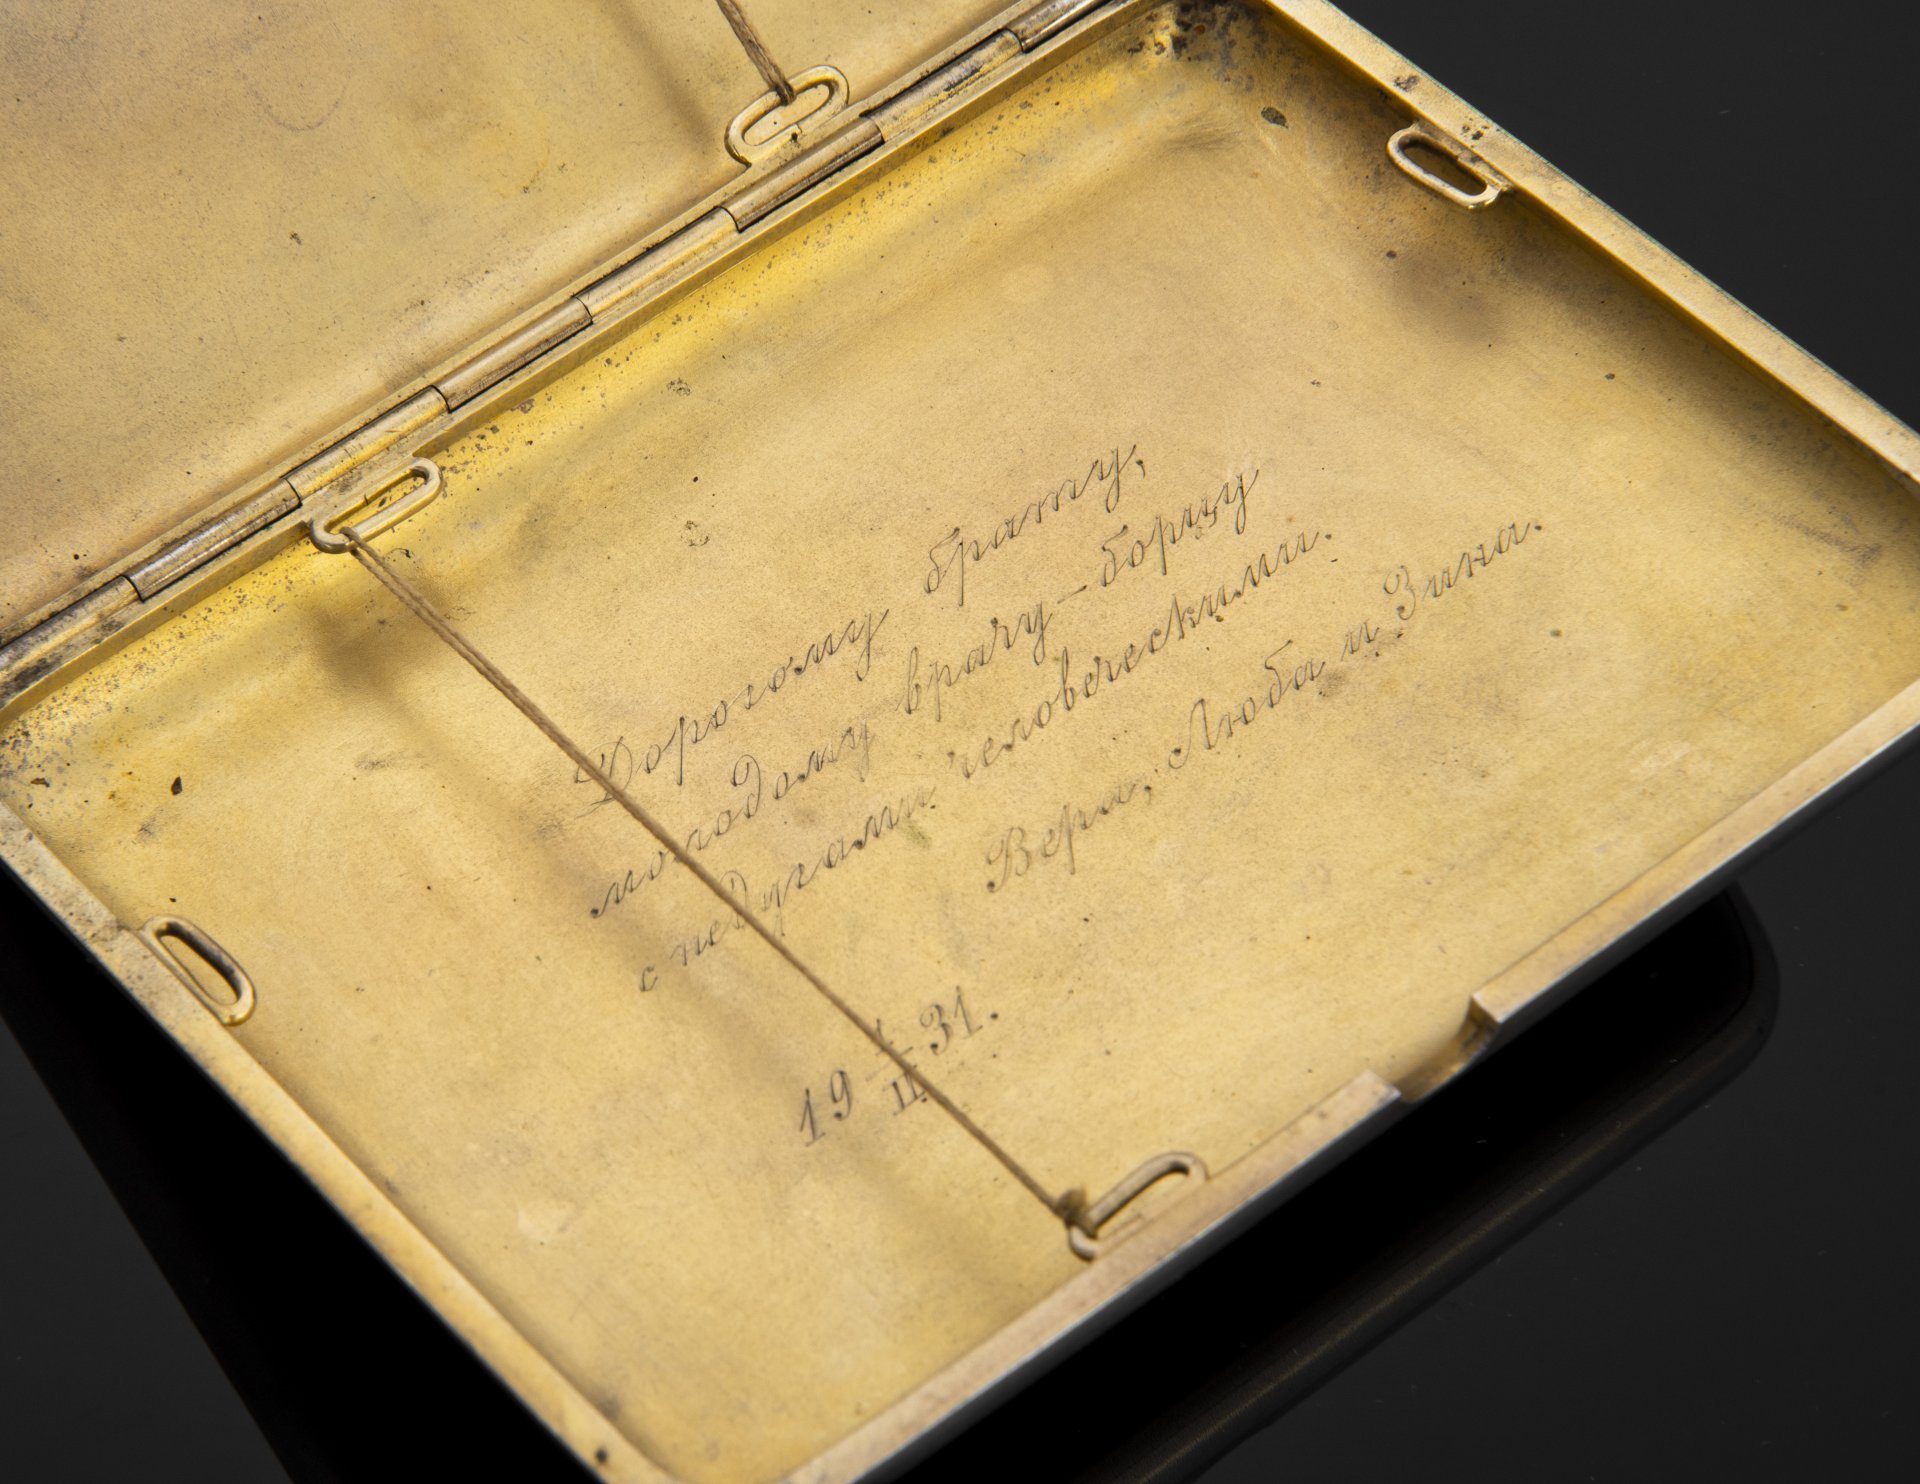 Дорогому брату,
молодому врачу – борцу
с недугами человеческими.
Вера, Люба и Зина.
19 1/II 31.